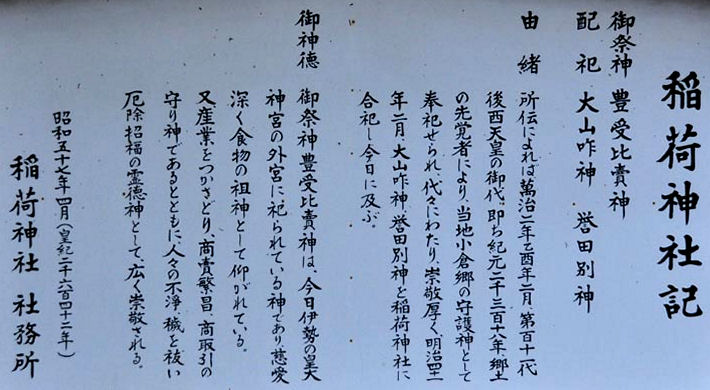 稲荷神社記
御祭神 豊受比賣神
配祀 大山咋神 誉田別神
由緒 所伝によれば萬治二年乙酉年二月、第百十一代
後西天皇の御代、即ち紀元二千三百十八年、郷土
の先覚者により、当地小倉郷の守護神として
奉祀せられ、代々にわたり、崇敬厚く、明治四十一
年二月、大山咋神、誉田別神を稲荷神社に
合祀し今日に及ぶ。
御神徳 御祭神豊受比賣神は、今日伊勢の皇大
神宮の外宮に祀られている神であり、慈愛
深く食物の祖神として仰がれている。
又産業をつかさどり、商賣繁昌、商取引の
守り神であるとともに、人々の不浄、穢を祓い
厄除招福の霊徳神として、広く崇敬される。
昭和五十七年四月(皇紀二千六百四十二年)
稲荷神社 社務所